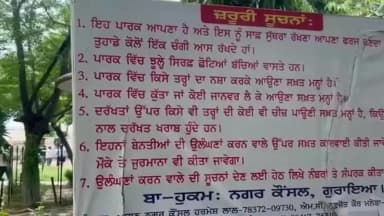 ਜ਼ਰੂਰੀ ਸੂਚਨਾਂ:
1. ਇਹ ਪਾਰਕ ਆਪਣਾ ਹੈ ਅਤੇ ਇਸ ਨੂੰ ਸਾਫ਼ ਸੁੱਥਰਾ ਰੱਖਣਾ ਆਪਣਾ ਫਰਜ਼ ਬਣਦਾ
ਤੁਹਾਡੇ ਕੋਲੋਂ ਇੱਕ ਚੰਗੀ ਆਸ ਰੱਖਦੇ ਹਾਂ।
2. ਪਾਰਕ ਵਿੱਚ ਝੂਲੇ ਸਿਰਫ਼ ਛੋਟਿਆਂ ਬੱਚਿਆਂ ਵਾਸਤੇ ਹਨ।
3. ਪਾਰਕ ਵਿੱਚ ਕਿਸੇ ਤਰ੍ਹਾਂ ਦਾ ਨਸ਼ਾ ਕਰਕੇ ਆਉਣਾ ਸਖ਼ਤ ਮਨ੍ਹਾ ਹੈ।
4. ਪਾਰਕ ਵਿੱਚ ਕੁੱਤਾ ਜਾਂ ਕੋਈ ਜਾਨਵਰ ਲੈ ਕੇ ਆਉਣਾ ਸਖ਼ਤ ਮਨ੍ਹਾ ਹੈ।
5. ਦਰੱਖਤਾਂ ਉੱਪਰ ਕਿਸੇ ਵੀ ਤਰ੍ਹਾਂ ਦੀ ਕੋਈ ਵੀ ਚੀਜ਼ ਪਾਉਣੀ ਸਖ਼ਤ ਮਨ੍ਹਾ ਹੈ,
ਨਾਲ ਦਰੱਖਤ ਖਰਾਬ ਹੁੰਦੇ ਹਨ।
6. ਇਹਨਾਂ ਬੇਨਤੀਆਂ ਦੀ ਉਲੰਘਣਾਂ ਕਰਨ ਵਾਲੇ ਉੱਪਰ ਸਖ਼ਤ ਕਾਰਵਾਈ ਕੀਤੀ
ਮੌਕੇ ਤੇ ਜੁਰਮਾਨਾ ਵੀ ਕੀਤਾ ਜਾਵੇਗਾ।
7. ਉਲੰਘਣਾਂ ਕਰਨ ਵਾਲੇ ਦੀ ਸੂਚਨਾਂ ਦੇਣ ਲਈ ਹੇਠ ਲਿਖੇ ਨੰਬਰ ਤੇ ਸੰਪਰਕ ਕੀਤਾ
ਬਾ-ਹੁਕਮ: ਨਗਰ ਕੌਂਸਲ, ਗੁਰਾਇਆ
ਨਗਰ ਕੌਂਸਲ ਹਰਮੇਸ਼ ਲਾਲ-78372-09730, ਐਮ.ਸੀ.